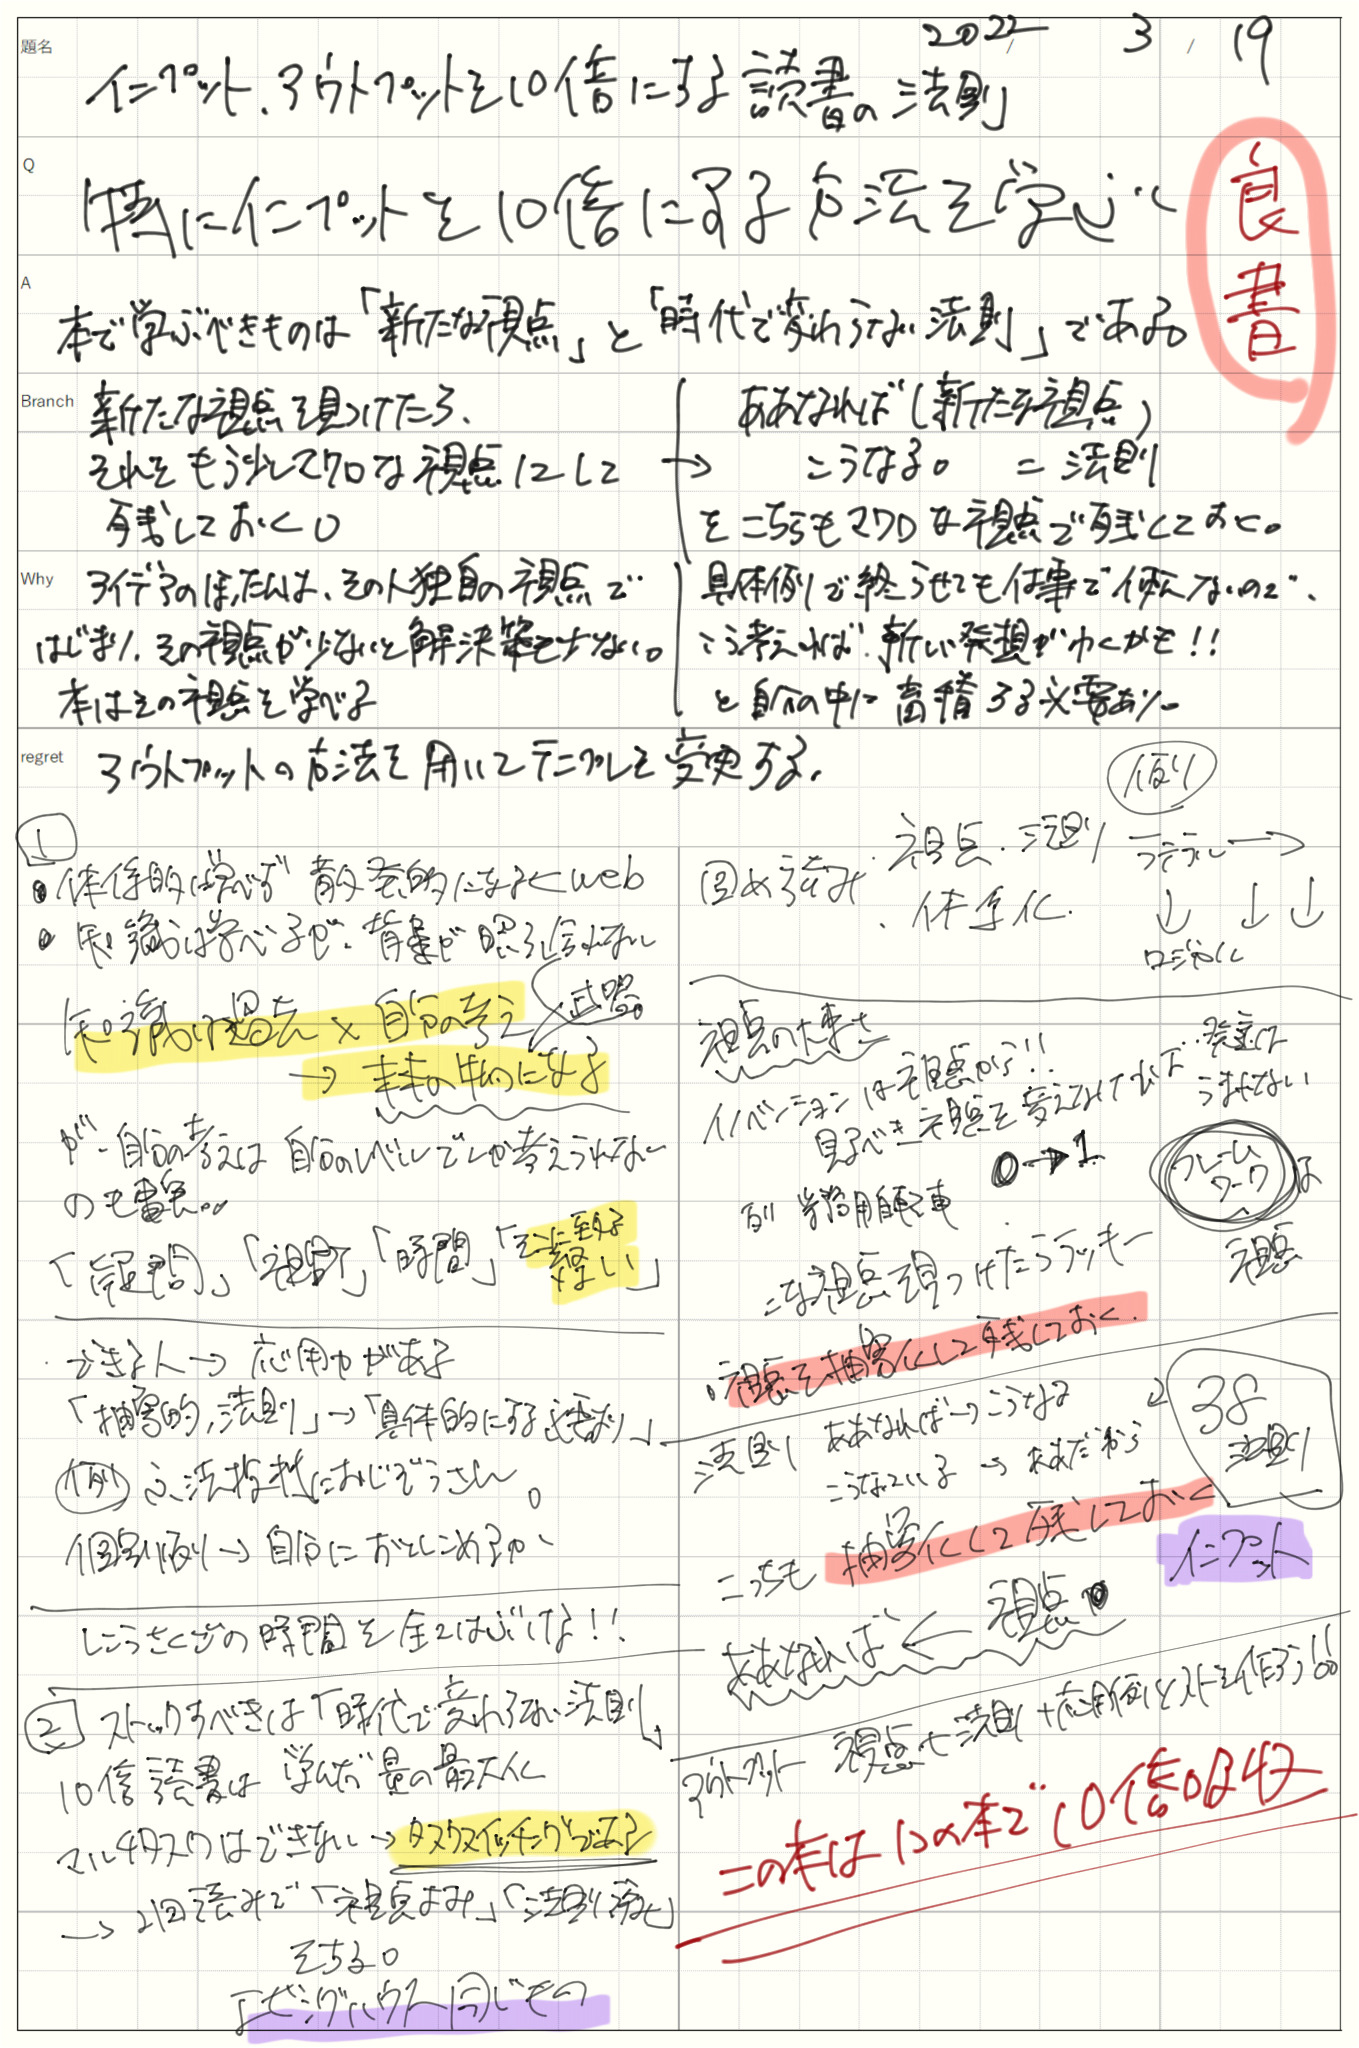 2022 / 3 / 19
題名
インプット、アウトプットを10倍にする読書の法則
Q
特にインプットを10倍にする方法を学ぶ
良書
A
本で学ぶべきものは「新たな視点」と「時代で変わらない法則」である。
Branch
新たな視点を見つけたら、
それをもう少しマクロな視点にして
残しておく。
→ ああなれば(新たな視点)
こうなる。 = 法則
をこちらもマクロな視点で残しておく。
Why
アイデアのほとんどは、その人独自の視点で
はじまり、その視点が少ないと解決策も少ない。
本はその視点を学べる
具体例で終らせても仕事で使えないので、
こう考えれば、新しい発想がわくかも!!
と自分の中に蓄積する必要あり。
regret
アウトプットの方法を用いてテンプレを変更する。
1
体係的に学べず 散発的になる←web
知識は学べるが、背景が照らし合わない
知識は過去 × 自分の考え
武器。
→ 未来の生物になる
が、自分の考えは自分のレベルでしか考えられない
のも事実。
「疑問」「視野」「時間」「そこに至る経緯」
できる人→応用力がある
「抽象的、法則」→「具体的にする必要あり」
例 不法投棄におじぞうさん。
個別例→自分におとしこめるか
しこうさくごの時間を全てはぶけな!!
2 ストックすべきは「時代で変わらない法則」
10倍読書は 学んだ量の最大化
マルチタスクはできない→タスクスイッチングである
→ 2回読みで「視点よみ」「法則読み」
をする。
例
視点・法則 ラテラル→
2回め読み
・体系化
ロジカル
視点の大事さ
イノベーションは視点から!!
見るべき視点を変えてみなければ、発案は
うまれない
0→1
例 常務用自転車
フレームワークは
視点
こな視点を見つけたらラッキー
・視点を抽象化して残しておく
法則 ああなれば→こうなる
こうなっている→ああだから
38
法則
こっちも抽象化して残しておく
インプット
ああなれば ← 視点
アウトプット 視点+法則+応用例リストを作ろう!!
この本は1つの本で10倍吸収